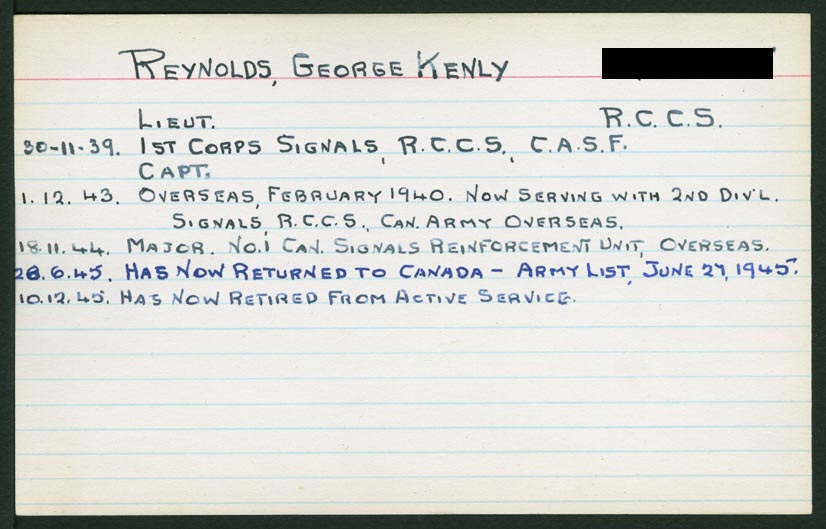 REYNOLDS, GEORGE KENLY
LIEUT. R.C.C.S.
30-11-39. 1ST CORPS SIGNALS, R.C.C.S., C.A.S.F.
CAPT.
1.12.43. OVERSEAS, FEBRUARY 1940. NOW SERVING WITH 2ND DIV'L.
SIGNALS, R.C.C.S., CAN. ARMY OVERSEAS.
18.11.44. MAJOR. NO.1 CAN. SIGNALS REINFORCEMENT UNIT, OVERSEAS.
28.6.45. HAS NOW RETURNED TO CANADA - ARMY LIST, JUNE 27, 1945.
10.12.45. HAS NOW RETIRED FROM ACTIVE SERVICE.